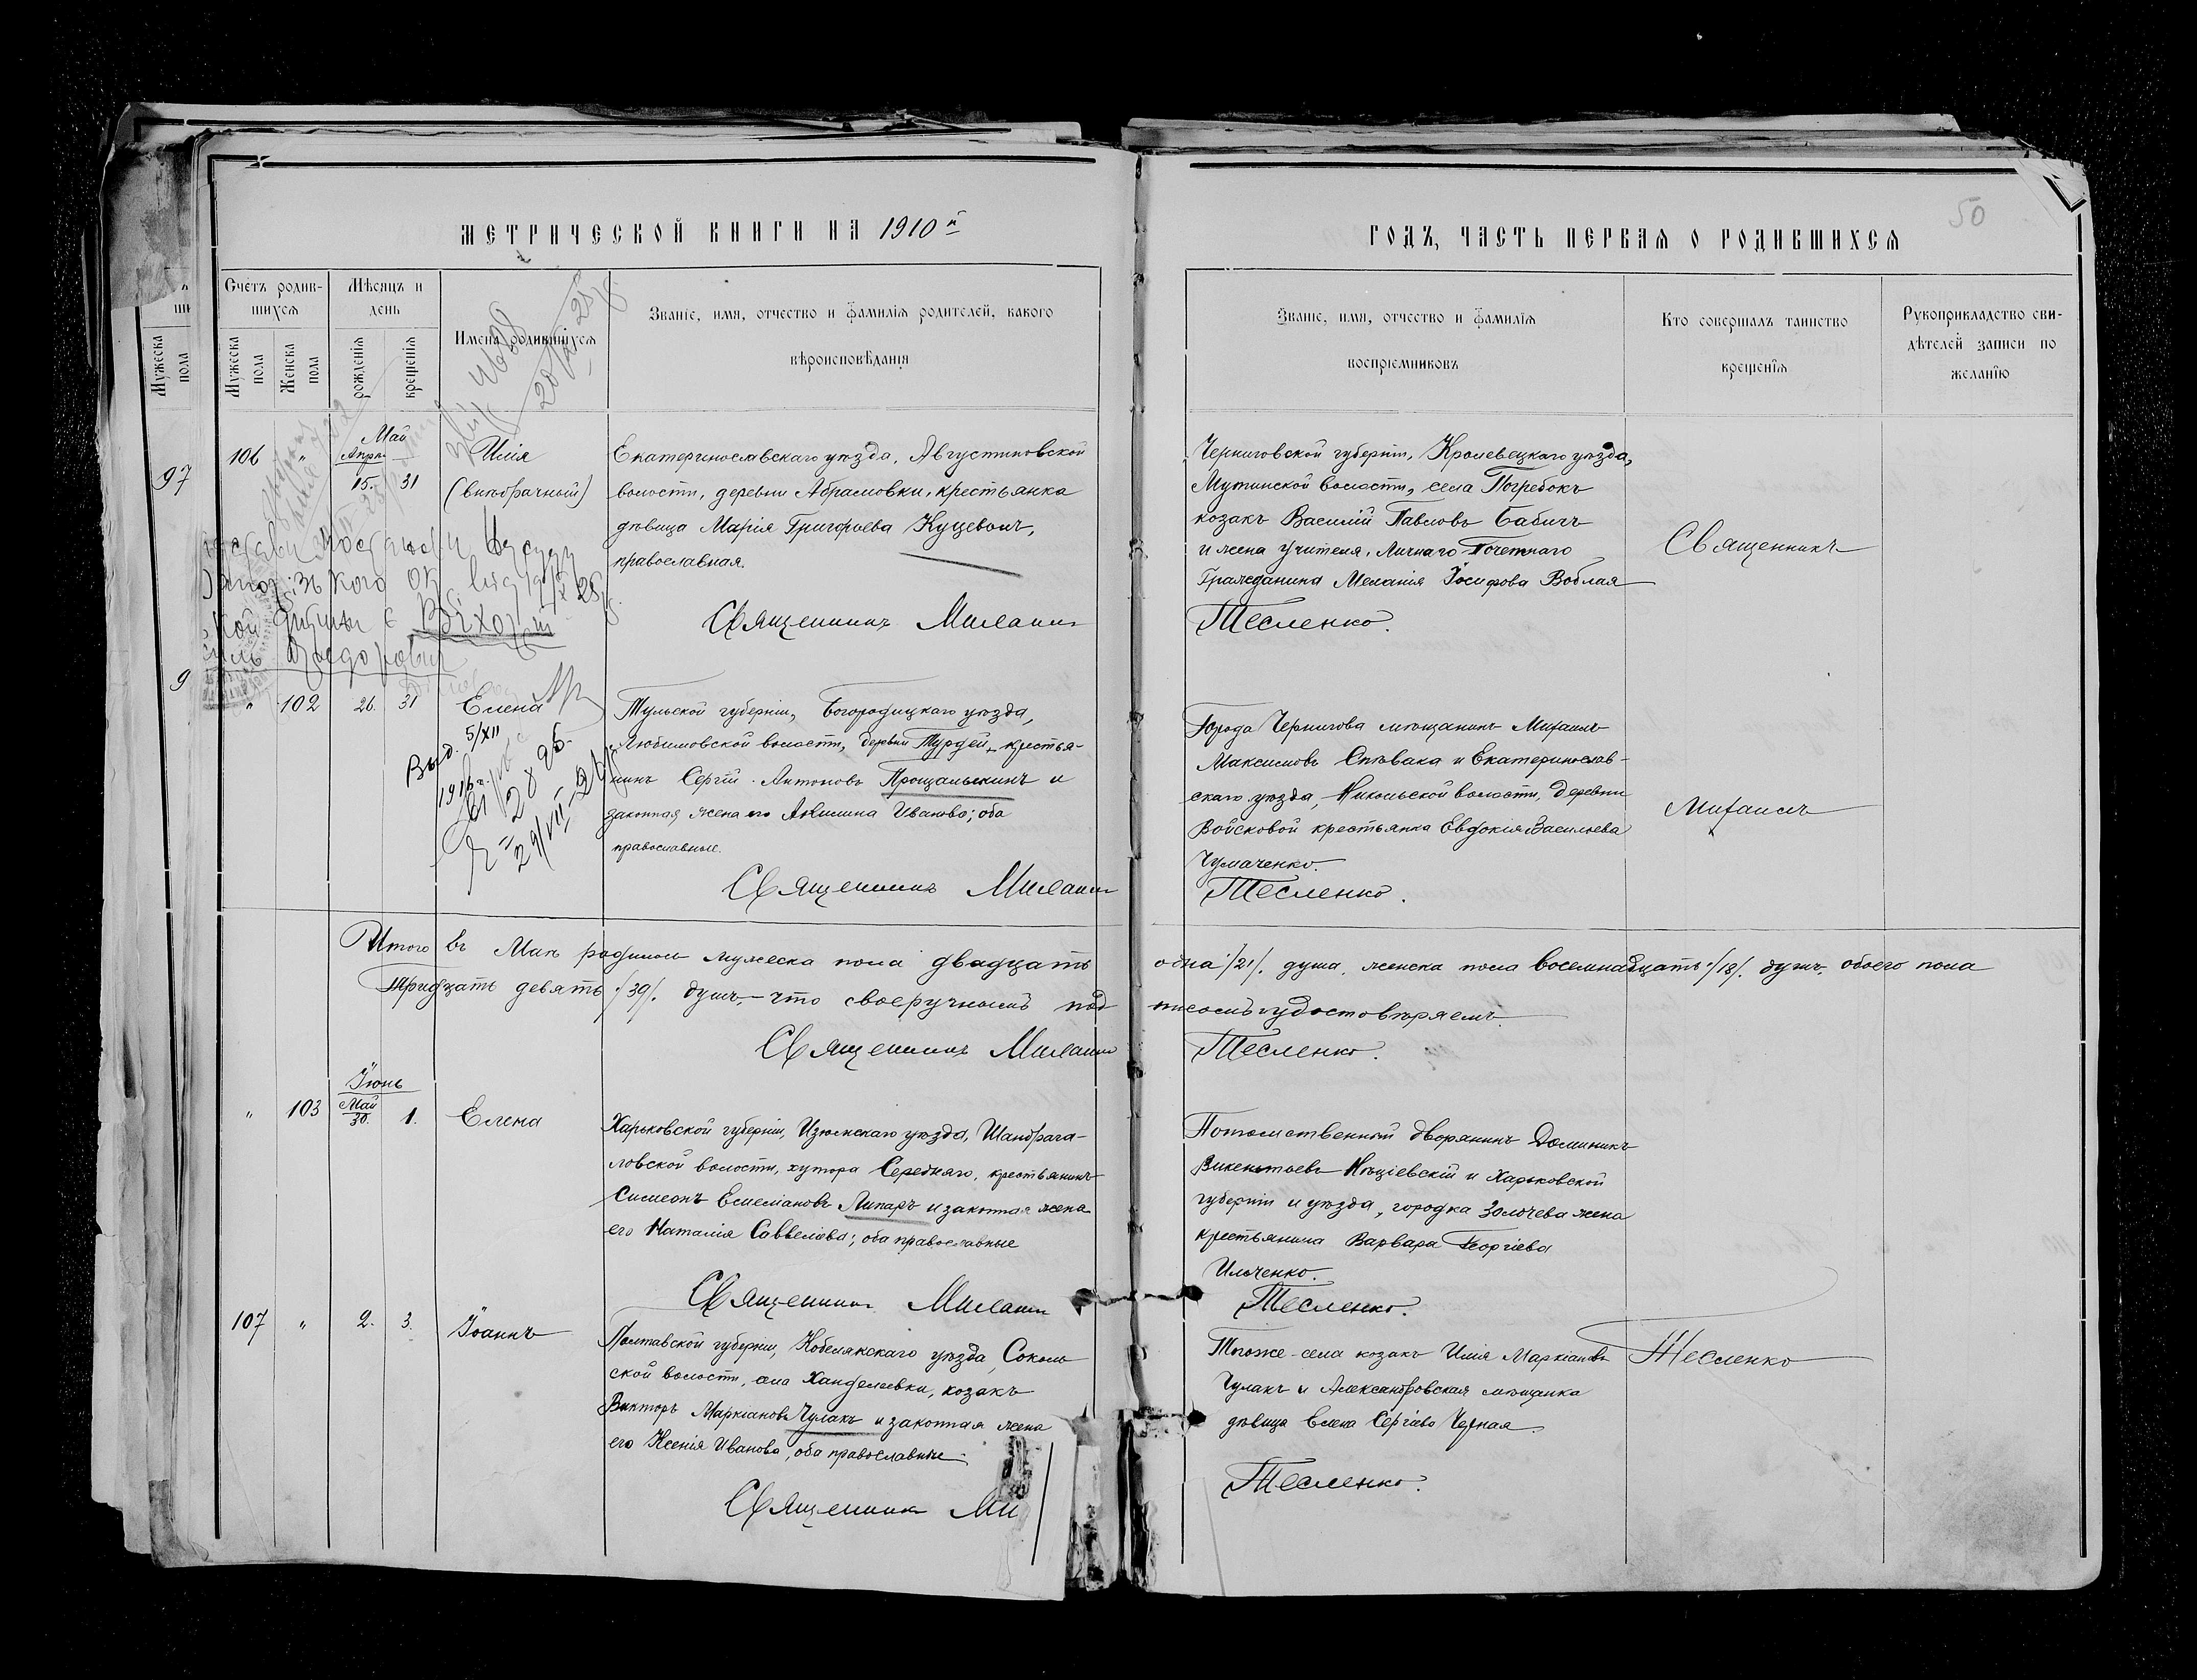 МЕТРИЧЕСКОЙ КНИГИ НА 1910й
ГОДЪ, ЧАСТЬ ПЕРВАЯ О РОДИВШИХСЯ
50
Счетъ родив-
шихся
Мѣсяцъ и
день
Имена родившихся
Званіе, имя, отчество и фамилія родителей, какого
вѣроисповѣданія
Мужеска
пола
Мужеска
пола
Женска
пола
рожденія
крещенія
Званіе, имя, отчество и фамилія
воспріемниковъ
Кто совершалъ таинство
крещенія
Рукоприкладство сви-
дѣтелей записи по
желанію
97
9
106
"
Май
Апрѣ.
15.
31
Илія
(внѣбрачный)
Екатеринославскаго уѣзда, Августиновской
волости, деревни Абрамовки, крестьянка
дѣвица Марія Григорьева Куцеволъ,
православная.
Священникъ Миланин
Черниговской губерніи, Кролевецкаго уѣзда,
Мутинской волости, села Погребокъ
козакъ Василій Павловъ Бабичъ
и жена учителя, Личнаго Почетнаго
Гражданина Меланія Іосифова Воблая
Тесленко.
Священникъ
"
102
26.
31
Елена
Выд. 5/XII
1916 г.
Тульской губерніи, Богородицкаго уѣзда,
Любимовской волости, деревни Турдей, крестья-
нинъ Сергій Антоновъ Прощалыкинъ и
законная жена его Акилина Иванова; оба
православные.
Священникъ Миланин
Города Чернигова мѣщанинъ Михаилъ
Максимовъ Спѣвака и Екатеринослав-
скаго уѣзда, Никольской волости, деревни
Войсковой крестьянка Евдокія Васильева
Чумаченко.
Тесленко.
Михаилъ
Итого въ Маѣ родилось мужеска пола двадцать одна /21/. душа, женска пола восемнадцать /18/. душъ, обоего пола
тридцать девять /39/. душъ, – что своеручнымъ подписомъ удостовѣряемъ.
Священникъ Миланин
Тесленко.
"
103
Іюнь
Май
30.
1.
Елена
Харьковской губерніи, Изюмскаго уѣзда, Шандраго-
ловской волости, хутора Середняго, крестьянинъ
Симеонъ Емеліановъ Липаръ и законная жена
его Наталія Саввеліева; оба православные
Священникъ Миланин
Потомственный дворянинъ Доминикъ
Викентьевъ Нѣціевскій и Харьковской
губерніи и уѣзда, городка Золочева жена
крестьянина Варвара Георгіева
Ильченко.
Тесленко.
107
"
2.
3.
Іоаннъ
Полтавской губерніи, Кобелякскаго уѣзда, Соколь
ской волости, села Ханделеевки, козакъ
Викторъ Маркіановъ Чулакъ и законная жена
его Ксенія Иванова, оба православные
Священникъ Ми
Того же села козакъ Илія Маркіановъ
Чулакъ и Александровская мѣщанка
дѣвица Елена Сергіева Черная.
Тесленко.
Тесленко